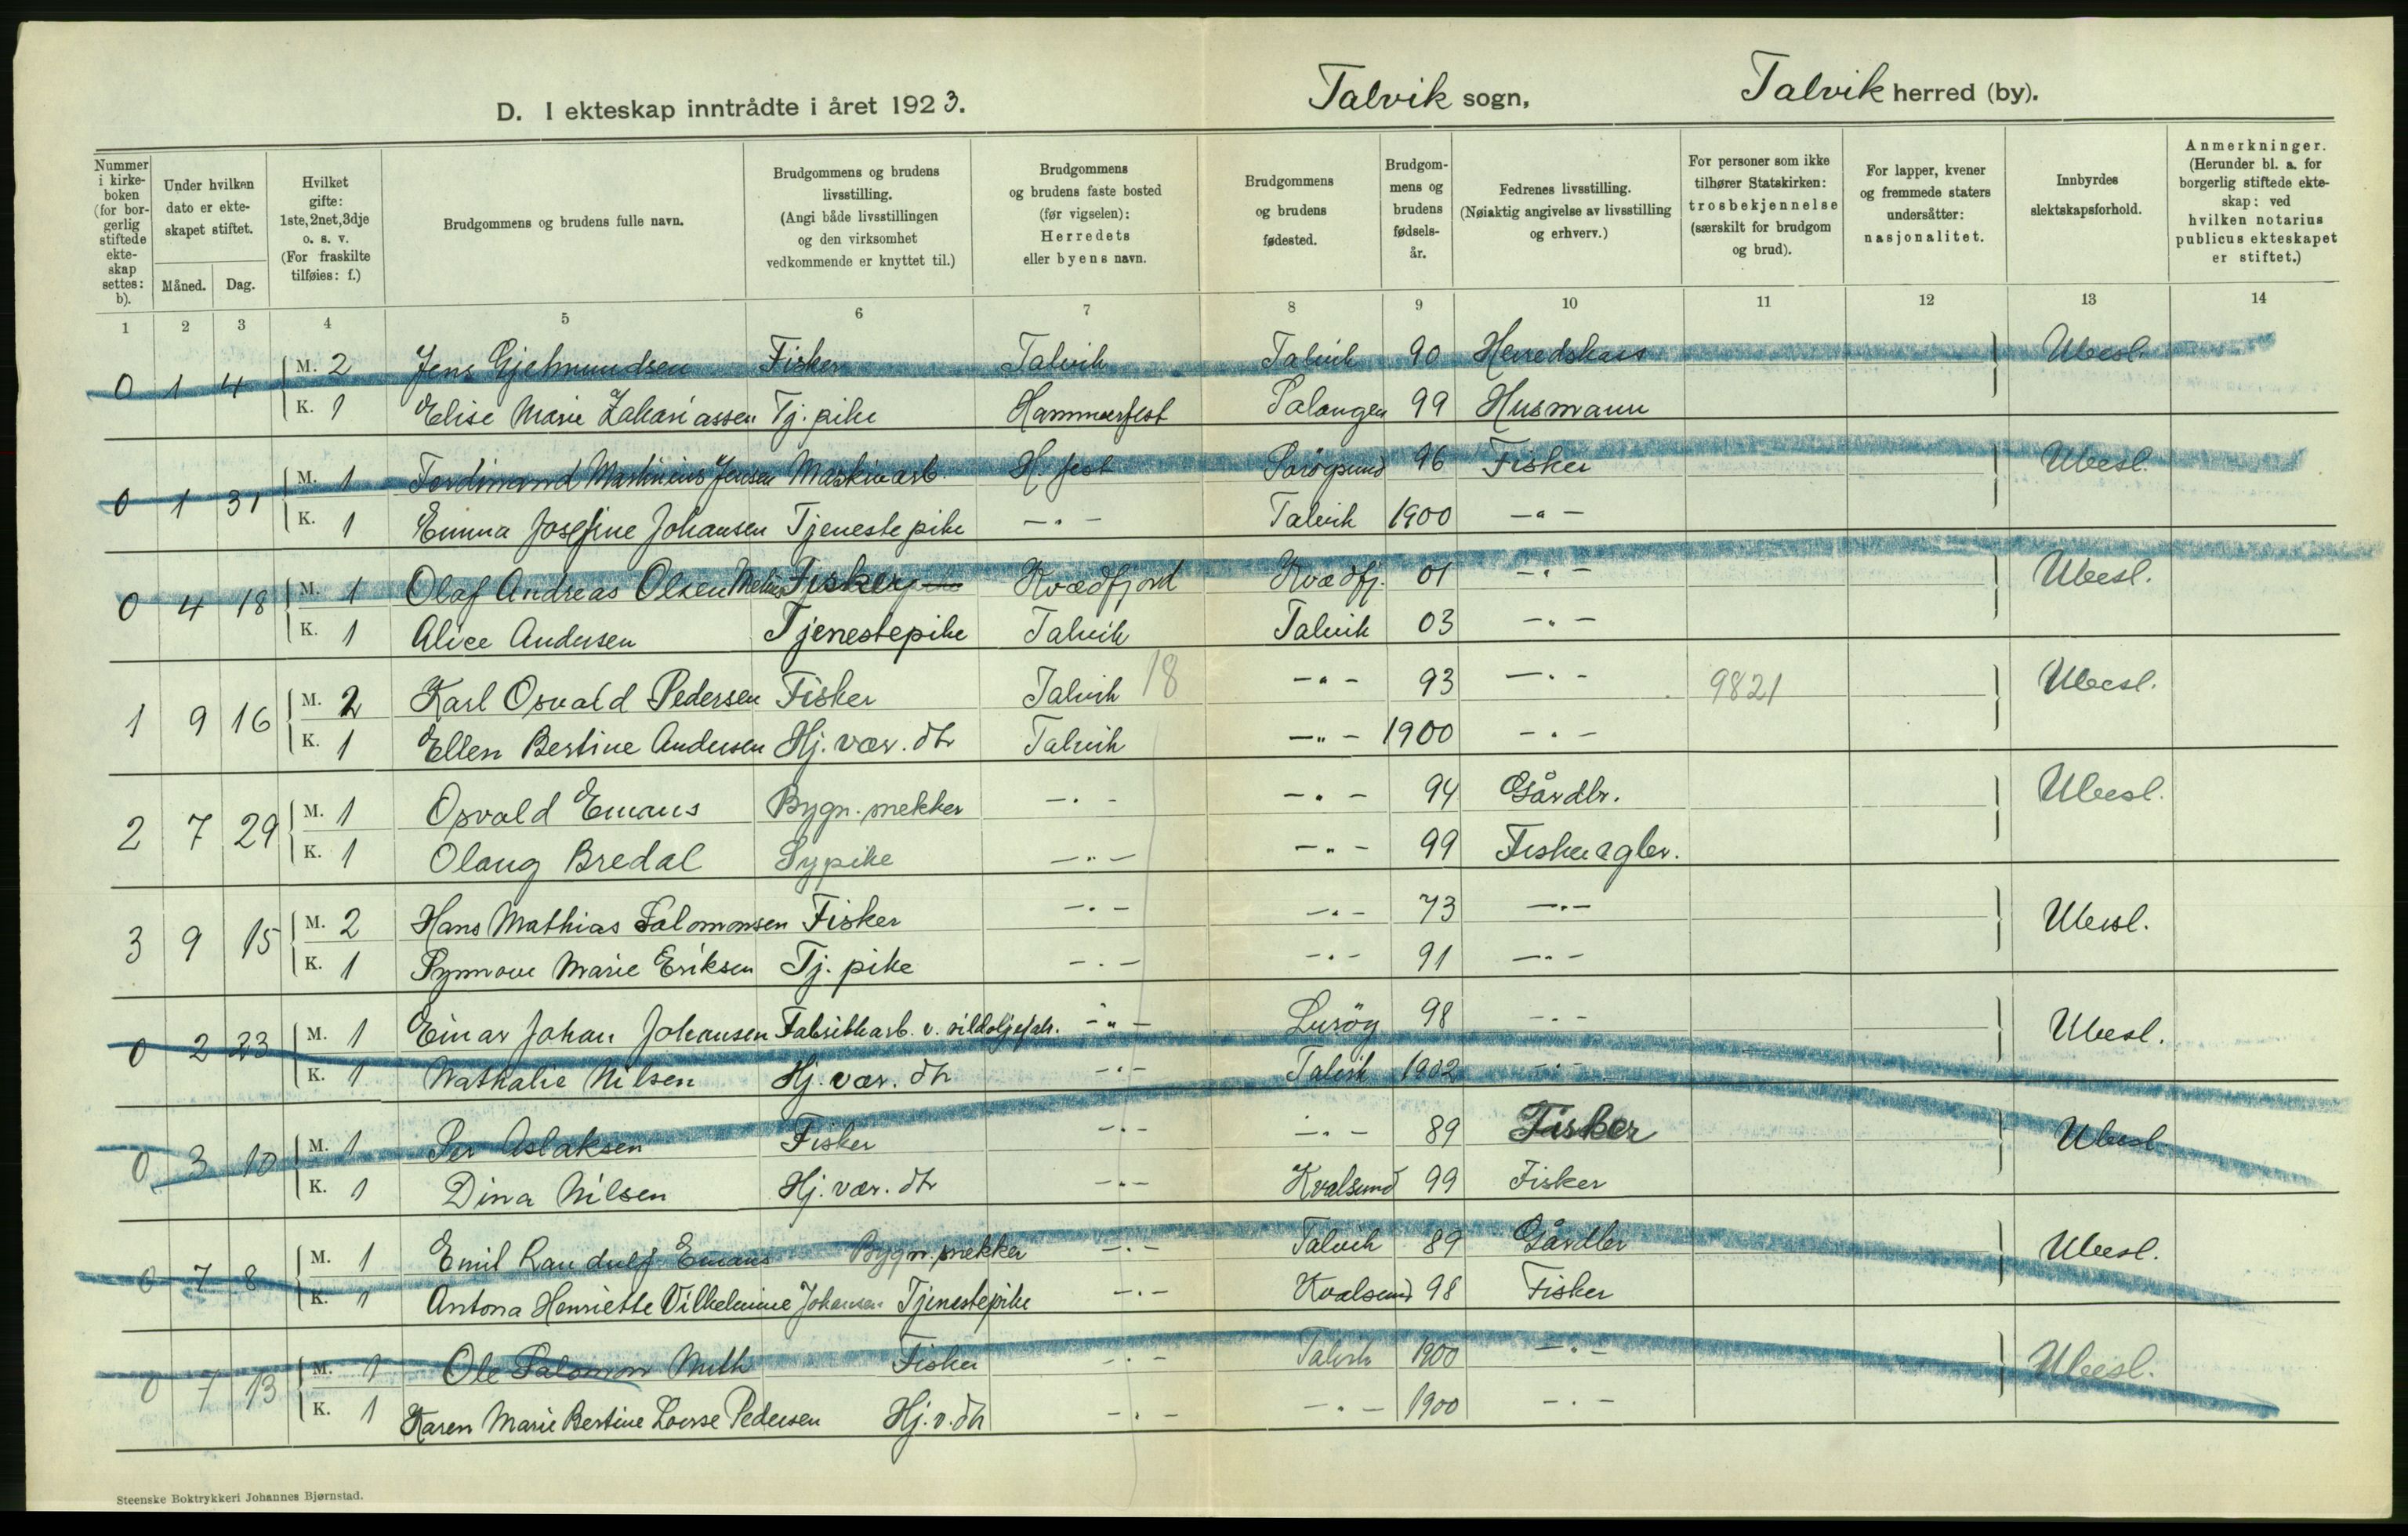 D. I ekteskap inntrådte i året 1923. Talvik sogn, Talvik herred (by).
Nummer i kirke-boken (for bor-gerlig stiftede ekte-skap settes: b).
Under hvilken dato er ekte-skapet stiftet.
Måned. Dag.
Hvilket gifte: 1ste, 2net, 3dje o. s. v. (For fraskilte tilføies: f.)
Brudgommens og brudens fulle navn.
Brudgommens og brudens livsstilling. (Angi både livsstillingen og den virksomhet vedkommende er knyttet til.)
Brudgommens og brudens faste bosted (før vigselen): Herredets eller byens navn.
Brudgommens og brudens fødested.
Brudgom-mens og brudens fødsels-år.
Fedrenes livsstilling. (Nøiaktig angivelse av livsstilling og erhverv.)
For personer som ikke tilhører Statskirken: trosbekjennelse (særskilt for brudgom og brud).
For lapper, kvener og fremmede staters undersåtter: nasjonalitet.
Innbyrdes slektskapsforhold.
Anmerkninger. (Herunder bl. a. for borgerlig stiftede ekte-skap: ved hvilken notarius publicus ekteskapet er stiftet.)
1 2 3 4 5 6 7 8 9 10 11 12 13 14
0 1 4 M. 2 Jens Gjetmundsen Fisker Talvik Talvik 90 Herredskass Ubesl.
K. 1 Elise Marie Zakariassen Tj. pike Hammerfest Salangen 99 Husmann
0 1 31 M. 1 Ferdinand Martinius Jensen Maskinarb. H.fest Sørøysund 96 Fisker Ubesl.
K. 1 Emma Josefine Johansen Tjenestepike -„- Talvik 1900 -„-
0 4 18 M. 1 Olaf Andreas Olsen Fisker Kvædfjord Kvædfj. 01 -„- Ubesl.
K. 1 Alice Andersen Tjenestepike Talvik Talvik 03 -„-
1 9 16 M. 2 Karl Osvald Pedersen Fisker Talvik 18 -„- 93 -„- 9821 Ubesl.
K. 1 Ellen Bertine Andersen Hj. vær. dtr Talvik -„- 1900 -„-
2 7 29 M. 1 Osvald Emaus Bygn. snekker -„- -„- 94 Gårdbr. Ubesl.
K. 1 Olaug Bredal Sypike -„- -„- 99 Fisker og br.
3 9 15 M. 2 Hans Mathias Salomonsen Fisker -„- -„- 73 -„- Ubesl.
K. 1 Synnøve Marie Eriksen Tj. pike -„- -„- 91 -„-
0 2 23 M. 1 Einar Johan Johansen Fabrikkarb. v. sildoljefabr. -„- Lurøy 98 -„- Ubesl.
K. 1 Nathalie Nilsen Hj. vær. dtr -„- Talvik 1902 -„-
0 3 10 M. 1 Per Aslaksen Fisker -„- -„- 89 Fisker Ubesl.
K. 1 Dina Nilsen Hj. vær. dtr -„- Kvalsund 99 Fisker
0 7 8 M. 1 Emil Raudulf Emaus Bygn. snekker -„- Talvik 89 Gårdbr Ubesl.
K. 1 Antona Henriette Vilhelmine Johansen Tjenestepike -„- Kvalsund 98 Fisker
0 7 13 M. 1 Ole Salomon Muth Fisker -„- Talvik 1900 -„- Ubesl.
K. 1 Karen Marie Bertine Lovise Pedersen Hj. v. dtr -„- -„- 1900 -„-
Steenske Boktrykkeri Johannes Bjørnstad.